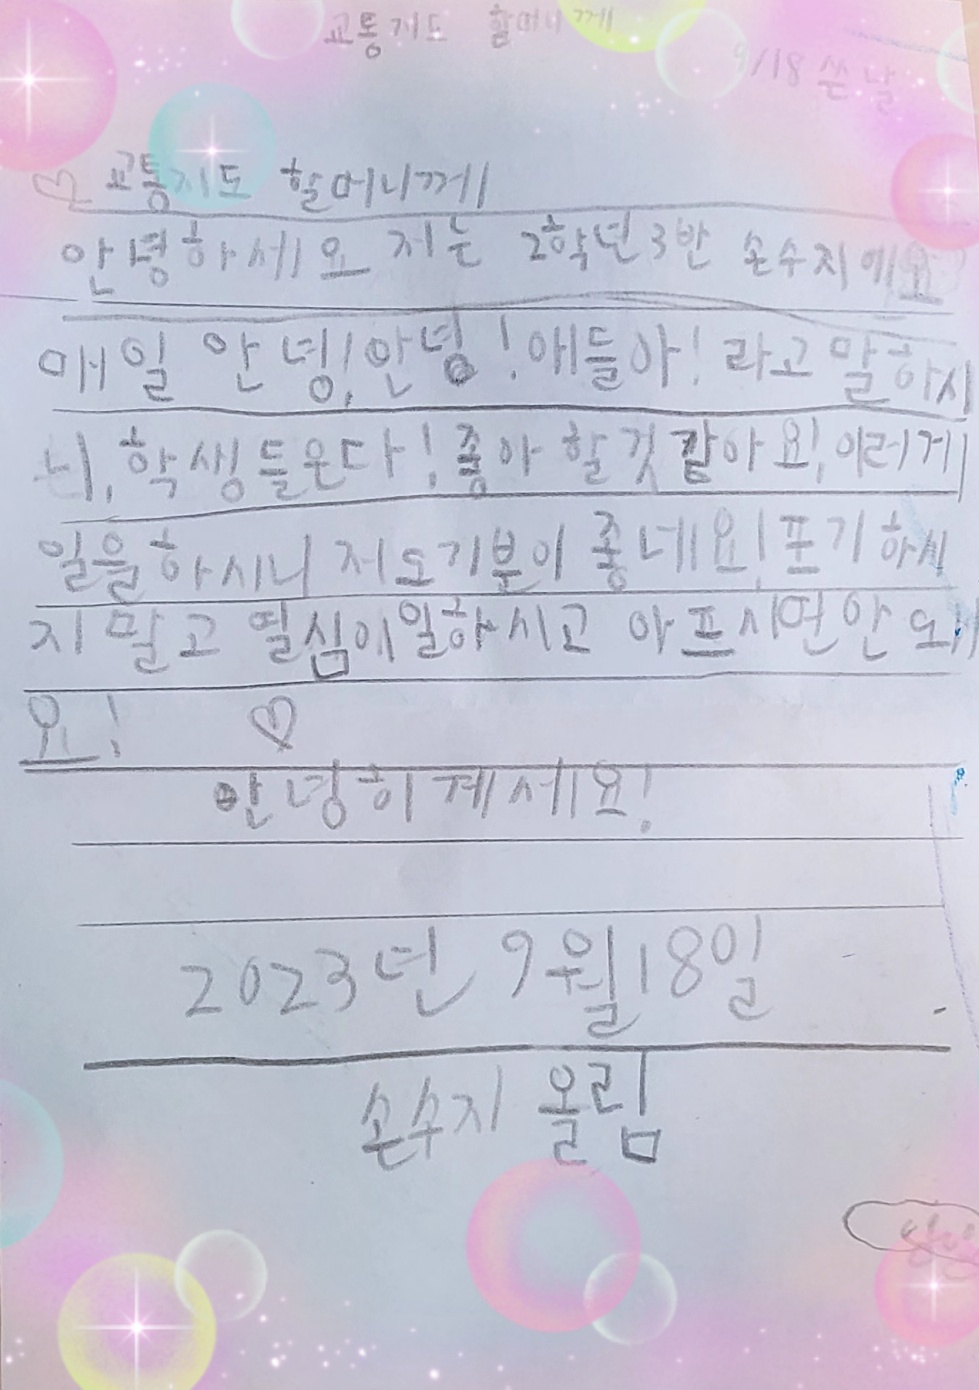 교통지도 할머니께
9/18 쓴 날
♡ 교통지도 할머니께
안녕하세요 저는 2학년3반 손수지에요
매일 안녕!안녕!애들아! 라고 말하시
니, 학생들은다!좋아 할것 같아요!, 이러게
일을 하시니 저도기분이 좋네요! 포기 하시
지 말고 띨심이일하시고 아프시면 안 되
요! ♡
안녕히 계세요!
2023년 9월 18일
손수지 올림